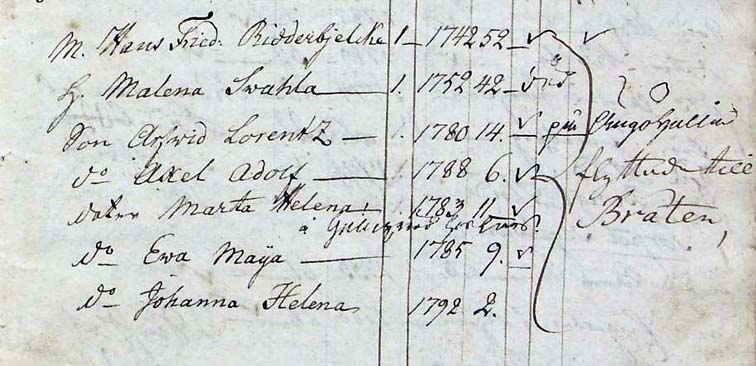 M. Hans Fried: Ridderbjelcke 1 – 1742 52 – ✓ ✓
H. Malena Swahla — 1. 1752 42 – död
Son Arfwid Lorentz — 1. 1780 14. ✓
do Axel Adolf — 1788 6. ✓ flyttade till
dotter Marta Helena 1783 11 ✓ Bråten,
à
do Ewa Maÿa — 1785 9. ✓
do Johanna Helena 1792 2.